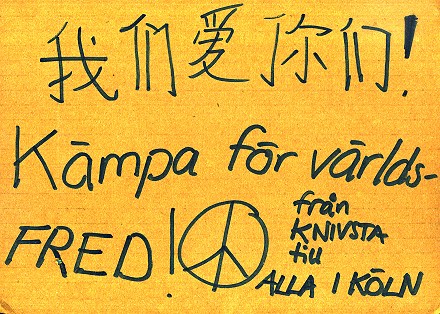 我们爱你们!
Kämpa för världs-
FRED!
från
KNIVSTA
till
ALLA I KÖLN